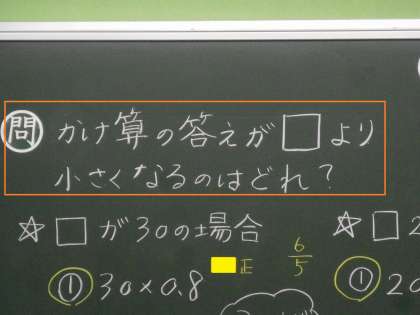 問 かけ算の答えが□より
小さくなるのはどれ?
☆□が30の場合 ☆□2
6/5
正
①30×0.8 ①20